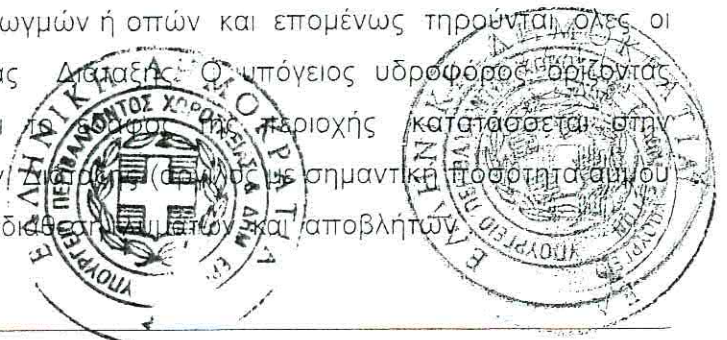 ωγμών ή οπών και επομένως τηρούνται όλες οι
ας Διάταξης. Ο υπόγειος υδροφόρος ορίζοντας
το έδαφος της περιοχής κατατάσσεται στην
Διάταξης (άργιλος με σημαντική ποσότητα άμμου
διάθεση λυμάτων και αποβλήτων
ΕΛΛΗΝΙΚΗ ΔΗΜΟΚΡΑΤΙΑ
ΥΠΟΥΡΓΕΙΟ ΠΕΡΙΒΑΛΛΟΝΤΟΣ ΧΩΡΟΤΑΞΙΑΣ & ΔΗΜ ΕΡ
ΕΛΛΗΝΙΚΗ ΔΗΜΟΚΡΑΤΙΑ
ΥΠΟΥΡΓΕΙΟ